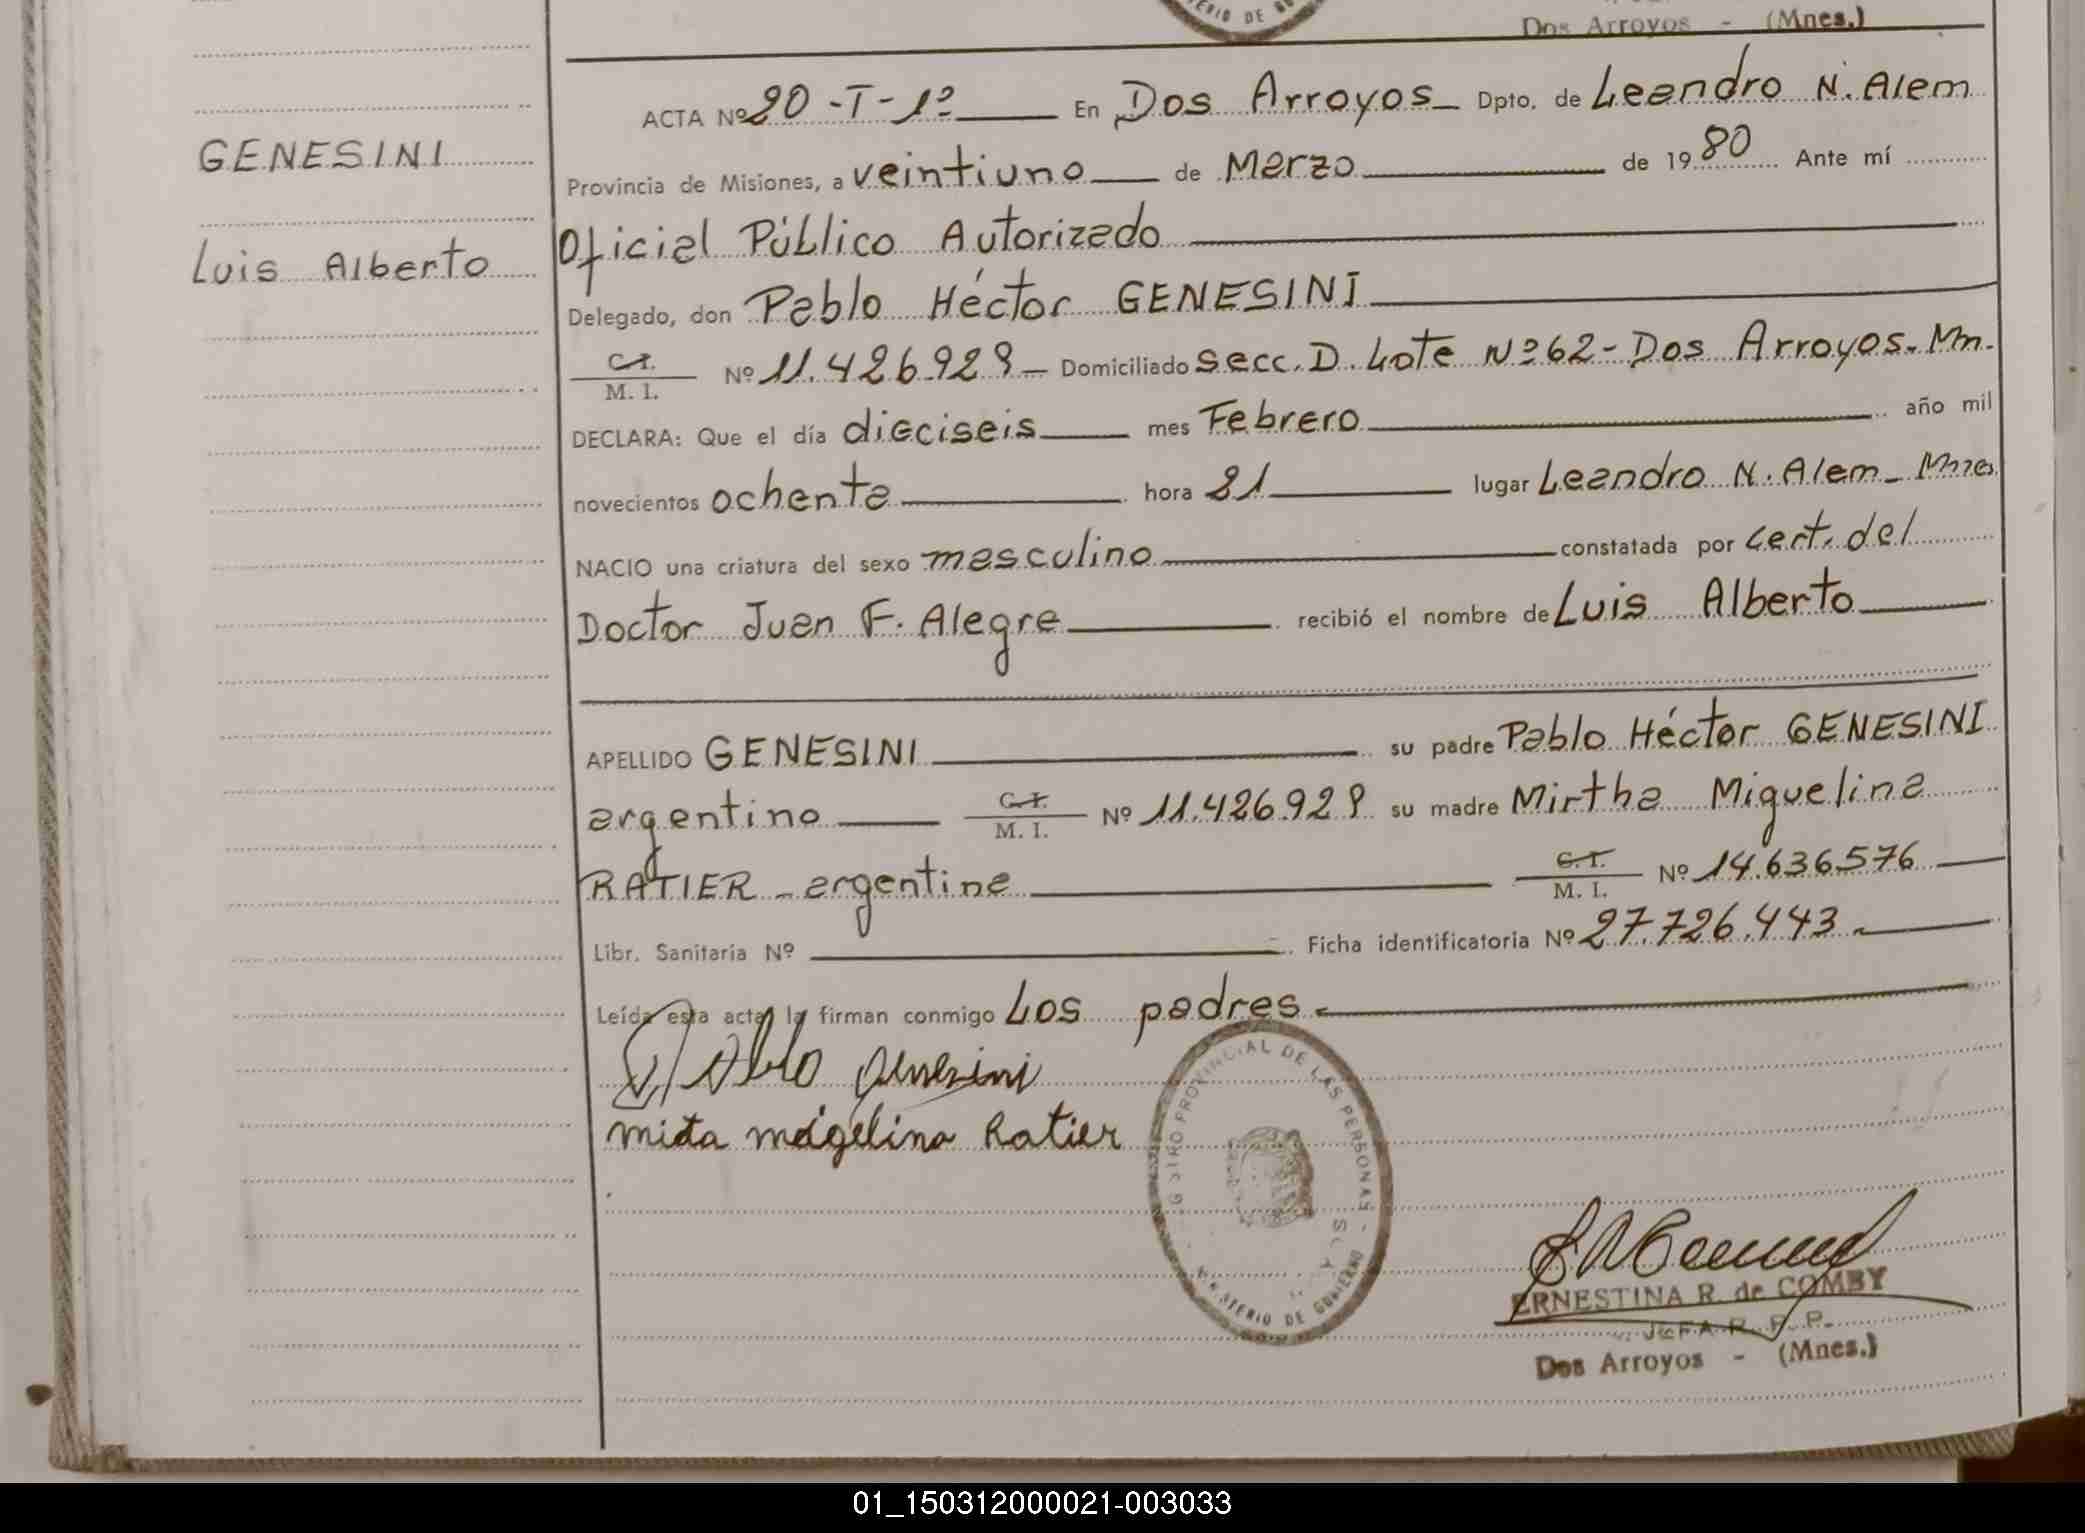 Dos Arroyos - (Mnes.)
MINISTERIO DE
ACTA Nº 20 -T-1º En Dos Arroyos Dpto. de Leandro N. Alem
GENESINI
Provincia de Misiones, a veintiuno de Marzo de 1980 Ante mí
Luis Alberto
Oficial Público Autorizado
Delegado, don Pablo Héctor GENESINI
C.I. M. I. Nº 11.426.929 Domiciliado Secc. D. Lote Nº 62 - Dos Arroyos. Mn.
DECLARA: Que el día dieciseis mes Febrero año mil
novecientos ochenta hora 21 lugar Leandro N. Alem - Mnes
NACIO una criatura del sexo masculino constatada por cert. del
Doctor Juan F. Alegre recibió el nombre de Luis Alberto
APELLIDO GENESINI su padre Pablo Héctor GENESINI
argentino C.I. M. I. Nº 11.426.929 su madre Mirtha Miguelina
RATIER - argentina C.I. M. I. Nº 14.636.576
Libr. Sanitaria Nº Ficha identificatoria Nº 27.726.443
Leída esta acta la firman conmigo Los padres
Pablo Genesini
mirta migelina Ratier
REGISTRO PROVINCIAL DE LAS PERSONAS
MINISTERIO DE GOBIERNO
ERNESTINA R. de COMBY
JEFA R. P. P.
Dos Arroyos - (Mnes.)
01_150312000021-003033